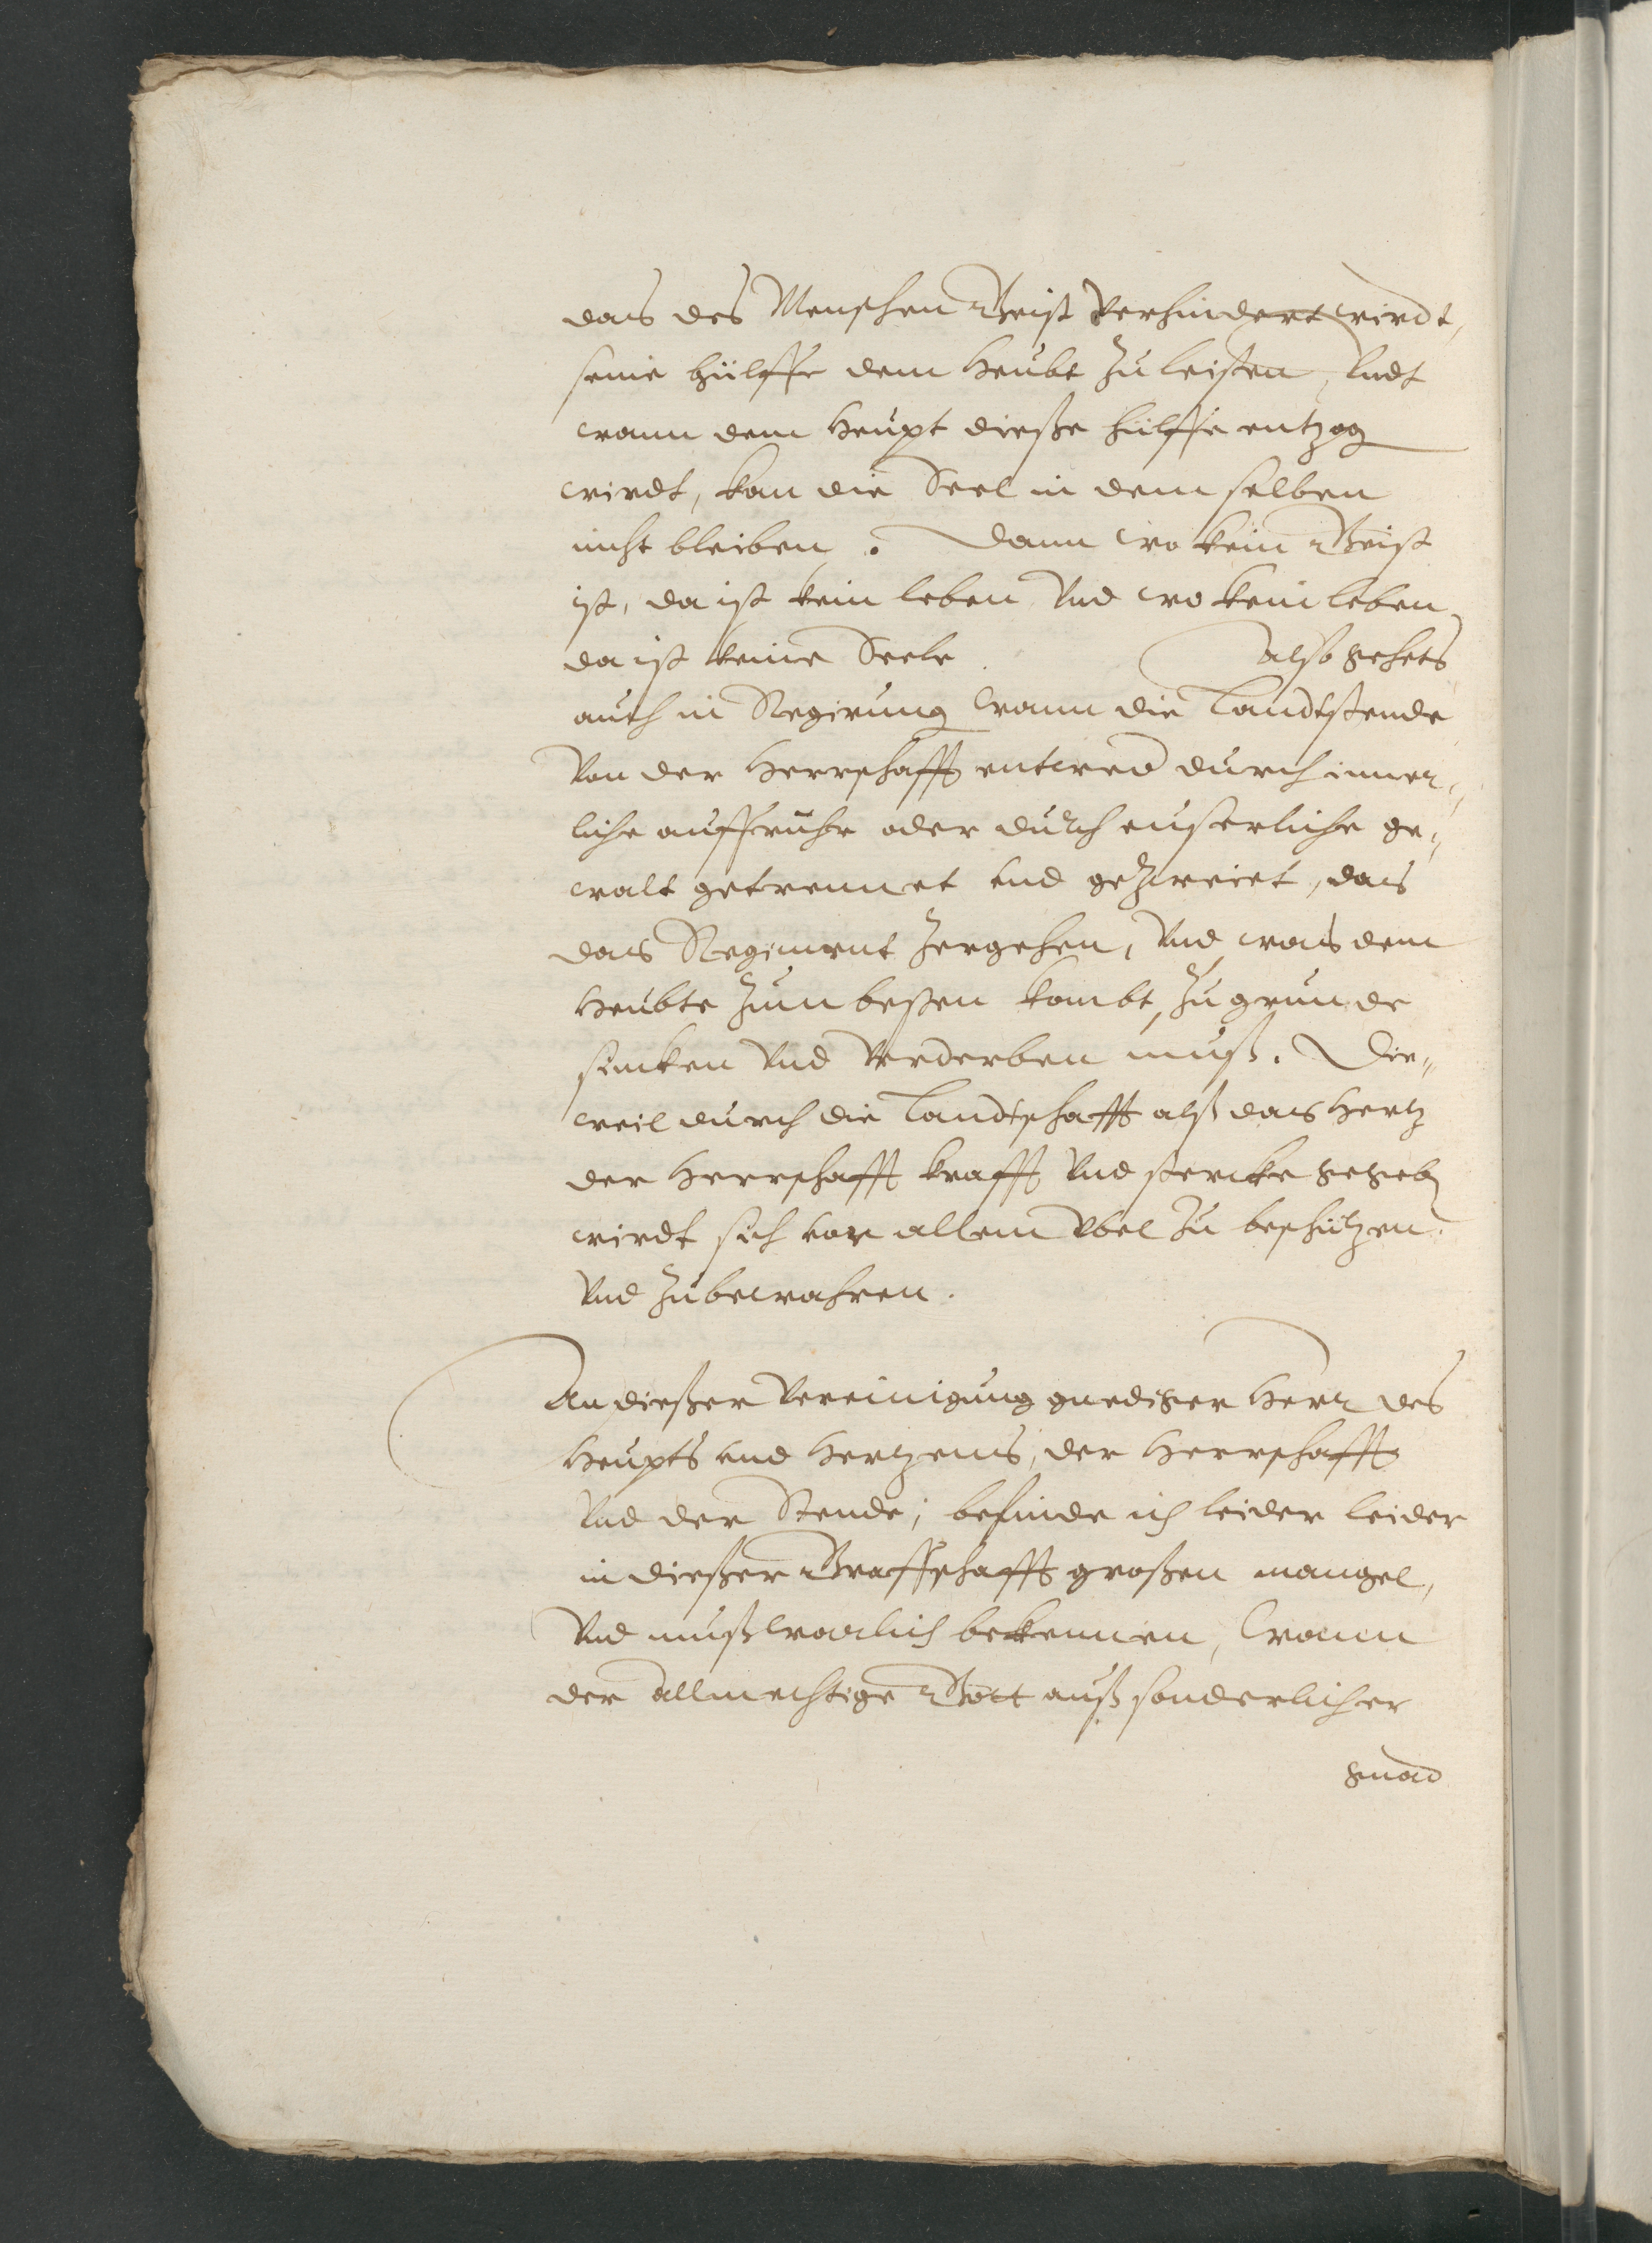 das des Menschen Geist verhindert wirdt,
seine hülffe dem Heubt zu leisten, Undt
wann dem Heupt dieße hülffe entzog
wirdt, kan die Seel in dem selben
nicht bleiben. Dann wo kein Geist
ist, da ist kein leben, Vnd wo kein leben,
da ist keine Seele. Also gehets
auch in Regirung wann die Landtstende
Von der Herrschafft entwed durch inner„
liche auffruhr oder durch euserliche ge„
walt getrennet vnd gezweiet, das
das Regiment zergehen, Vnd was dem
Heubte zum besten kombt, zu grunde
sincken Vnd verderben muß. Die„
weil durch die Landtschafft alß das Hertz
der Herrschafft krafft Vnd stercke gegeb
wirdt sich vor allem Vbel zu beschützen
Vnd zubewahren.
An dießer Vereinigung gnediger Herr des
Heupts vnd Hertzens, der Herrschafft
Vnd der Stende, befinde ich leider leider
in dießer Graffschafft großen mangel,
Vnd muß warlich bekennen, Wann
der Allmechtige Gott auß sonderlicher
gnad